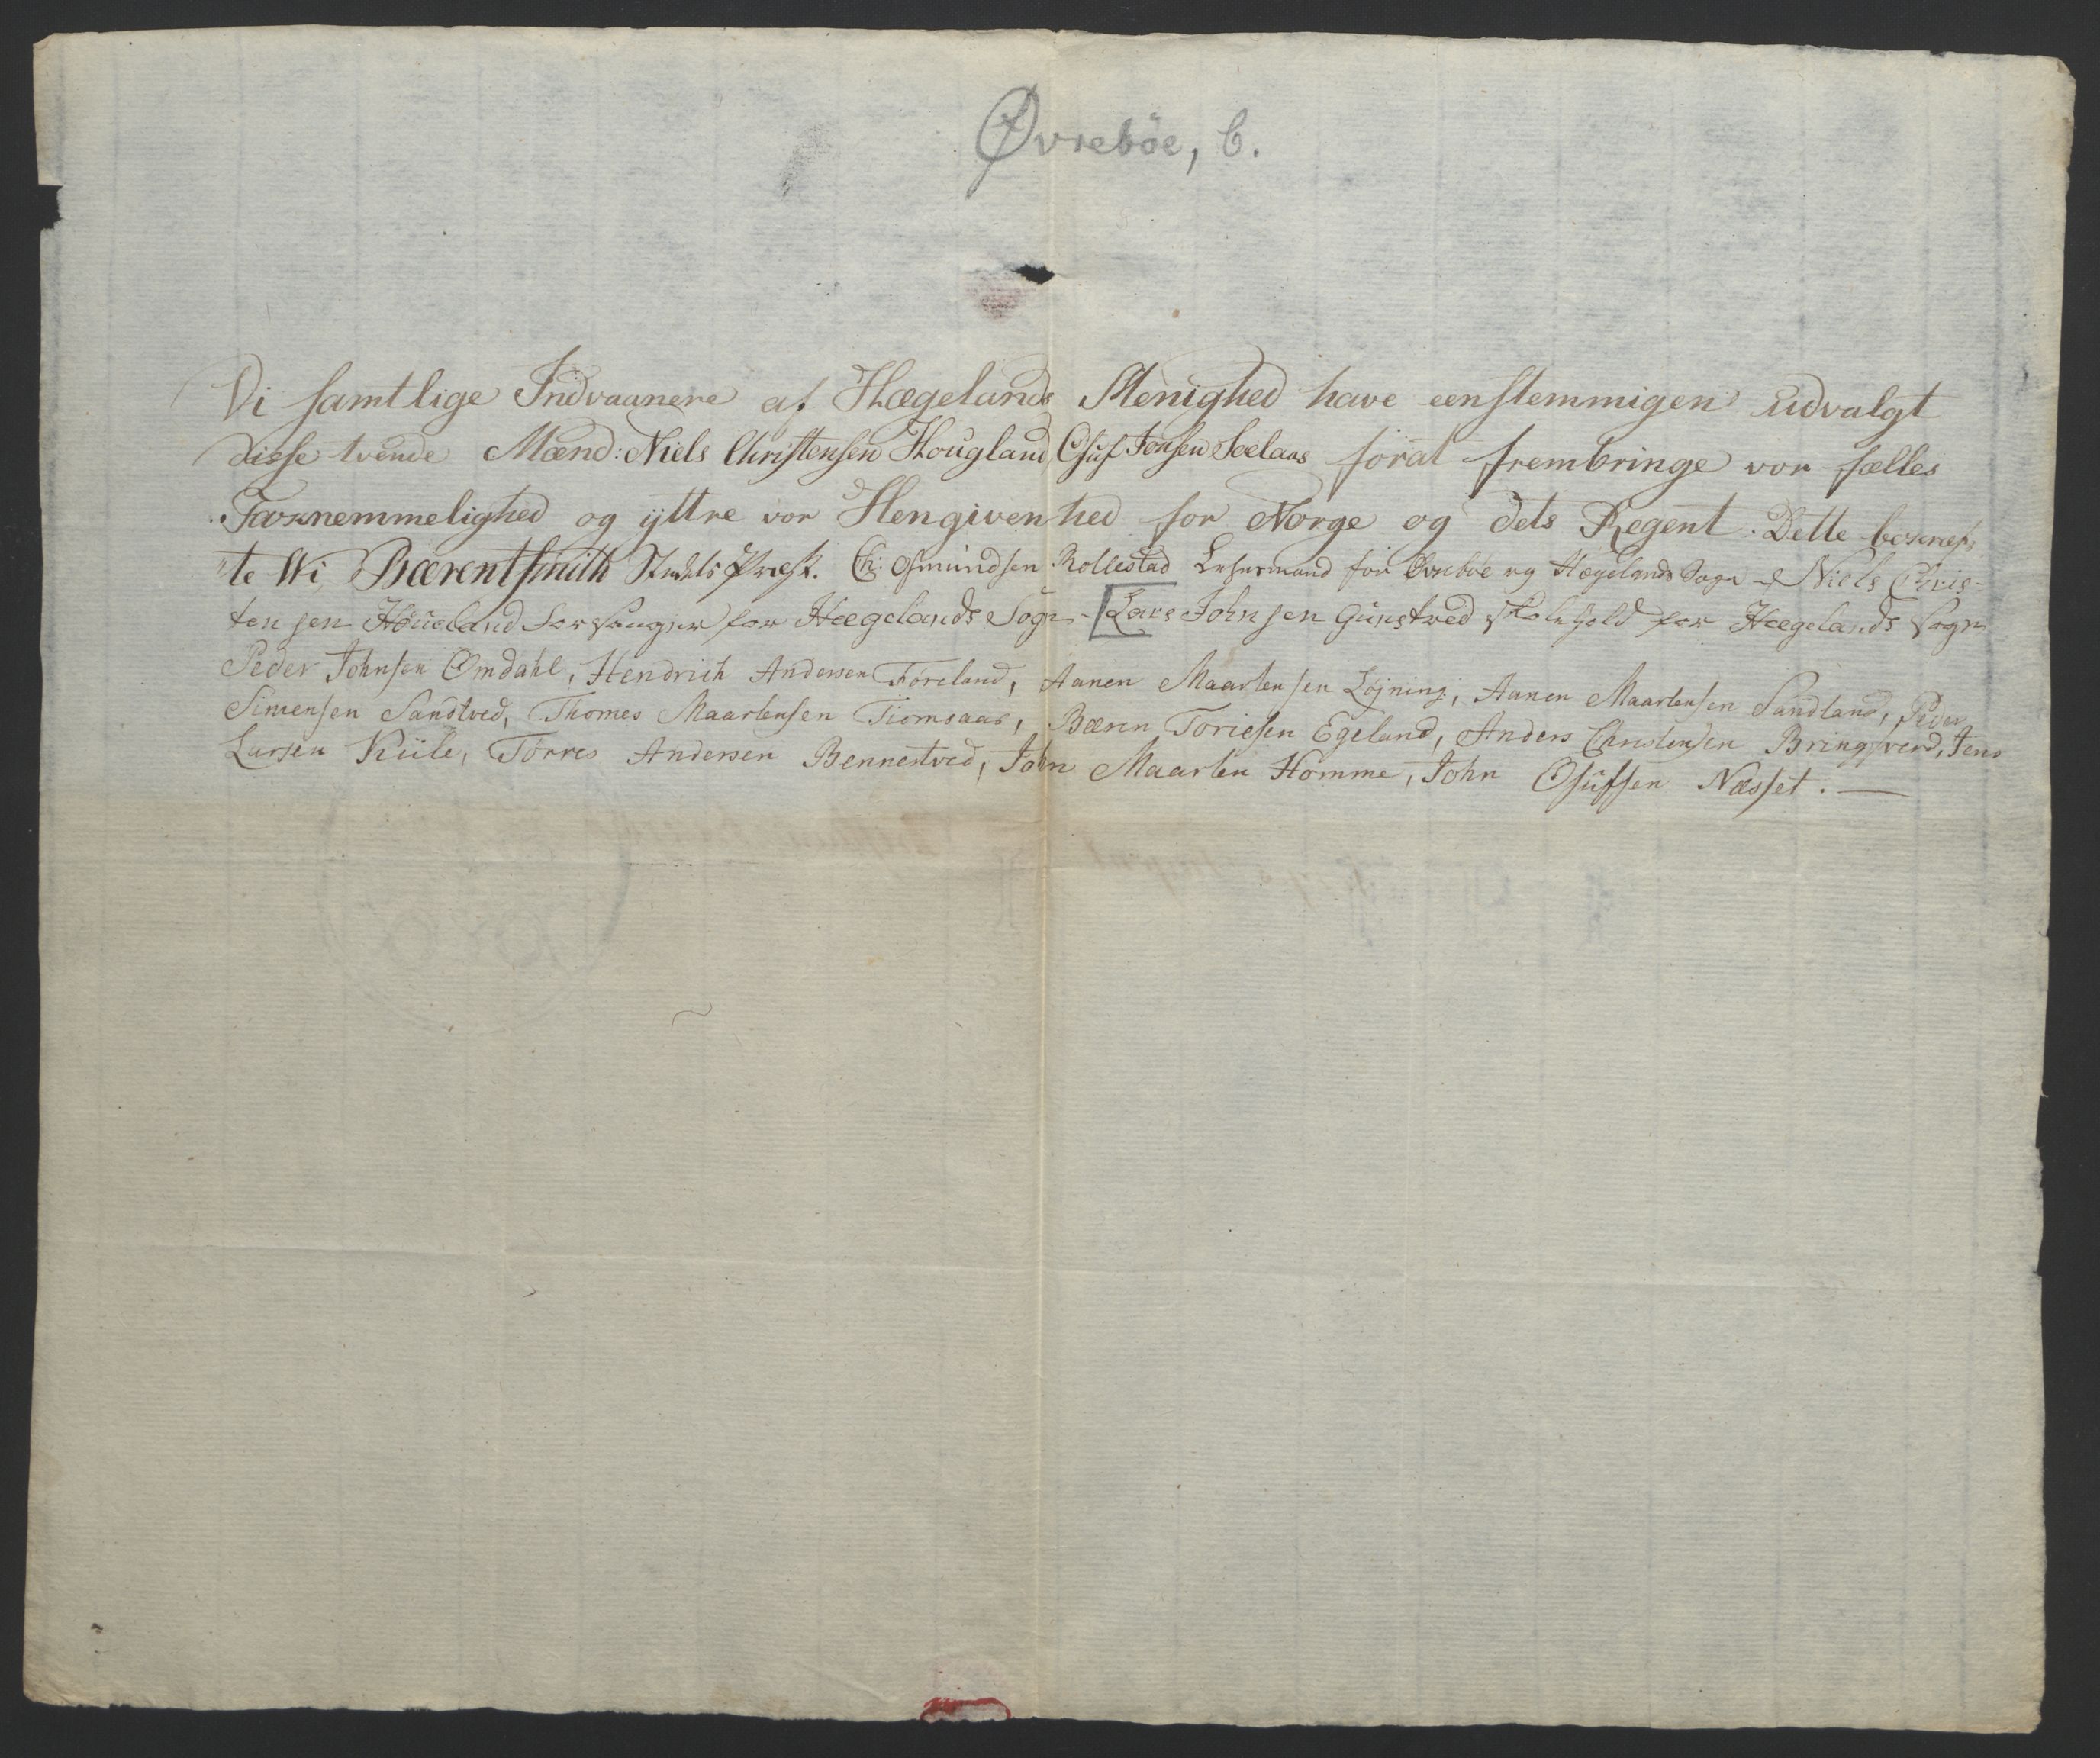 Øvrebøe, b.
Vi samtlige Indvaanere af Hægelands Menighed have eenstemmigen udvalgt
disse tvende Mænd: Niels Christensen Hougland Osuf Jensen Loelaas forat frembringe vor fælles
Taknemmelighed og ÿttre vor Hengivenhed for Norge og dets Regent. Dette bekræf-
te Wi Bærent Smith Stædets Præst. Ch: Osmundsen Rollestad Lensmand for Øvrebøe og Hægelands Sogn - Niels Chris-
tensen Höugland Forsanger for Hægelands Sogn - Lars Johnsen Gunstved for Hægelands Sogn
Peder Johnsen Omdahl, Hendrich Andersen Föreland, Aanen Maartensen Löjning, Aanen Maartensen Sandland, Peder
Simensen Sandtved, Thomes Maartensen Tiomsaas, Bæren Toriesen Egeland, Anders Christensen Bringsverd, Jens
Larsen Kiile, Törres Andersen Bennestved, John Maarten Homme, John Osufsen Næsset. —